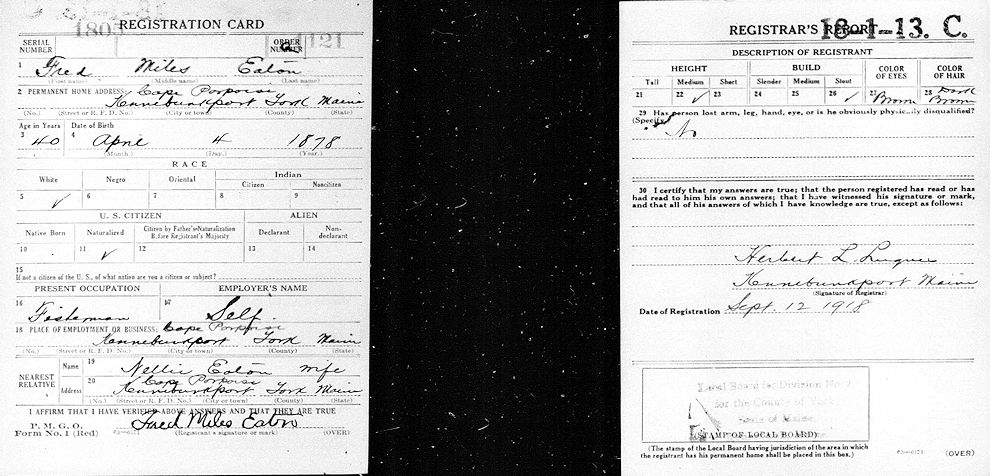 REGISTRATION CARD
1805
SERIAL NUMBER
ORDER NUMBER
121
1 Fred Miles Eaton
(First name) (Middle name) (Last name)
2 PERMANENT HOME ADDRESS: Cape Porpoise
Kennebunkport York Maine
(No.) (Street or R. F. D. No.) (City or town) (County) (State)
Age in Years Date of Birth
3 40 4 April 4 1878
(Month.) (Day.) (Year.)
RACE
White Negro Oriental Indian
Citizen Noncitizen
5 ✓ 6 7 8 9
U. S. CITIZEN ALIEN
Native Born Naturalized Citizen by Father's Naturalization Before Registrant's Majority Declarant Non-declarant
10 11 ✓ 12 13 14
15
If not a citizen of the U. S., of what nation are you a citizen or subject?
PRESENT OCCUPATION EMPLOYER'S NAME
16 Fisherman 17 Self
18 PLACE OF EMPLOYMENT OR BUSINESS: Cape Porpoise
Kennebunkport York Maine
(No.) (Street or R. F. D. No.) (City or town) (County) (State)
NEAREST RELATIVE
Name 19 Nellie Eaton wife
Address 20 Cape Porpoise
Kennebunkport York Maine
(No.) (Street or R. F. D. No.) (City or town) (County) (State)
I AFFIRM THAT I HAVE VERIFIED ABOVE ANSWERS AND THAT THEY ARE TRUE
P. M. G. O.
Form No. 1 (Red)
Fred Miles Eaton
(Registrant's signature or mark) (OVER)
REGISTRAR'S REPORT
18-1-13. C.
DESCRIPTION OF REGISTRANT
HEIGHT BUILD COLOR OF EYES COLOR OF HAIR
Tall Medium Short Slender Medium Stout
21 22 ✓ 23 24 25 26 ✓ 27 Brown 28 Dark Brown
29 Has person lost arm, leg, hand, eye, or is he obviously physically disqualified?
(Specify.)
No
30 I certify that my answers are true; that the person registered has read or has
had read to him his own answers; that I have witnessed his signature or mark,
and that all of his answers of which I have knowledge are true, except as follows:
Herbert L.
Kennebunkport Maine
(Signature of Registrar)
Date of Registration Sept. 12 1918
Local Board for Division No. 2
for the County of York
State of Maine
(STAMP OF LOCAL BOARD)
(The stamp of the Local Board having jurisdiction of the area in which
the registrant has his permanent home shall be placed in this box.)
(OVER)